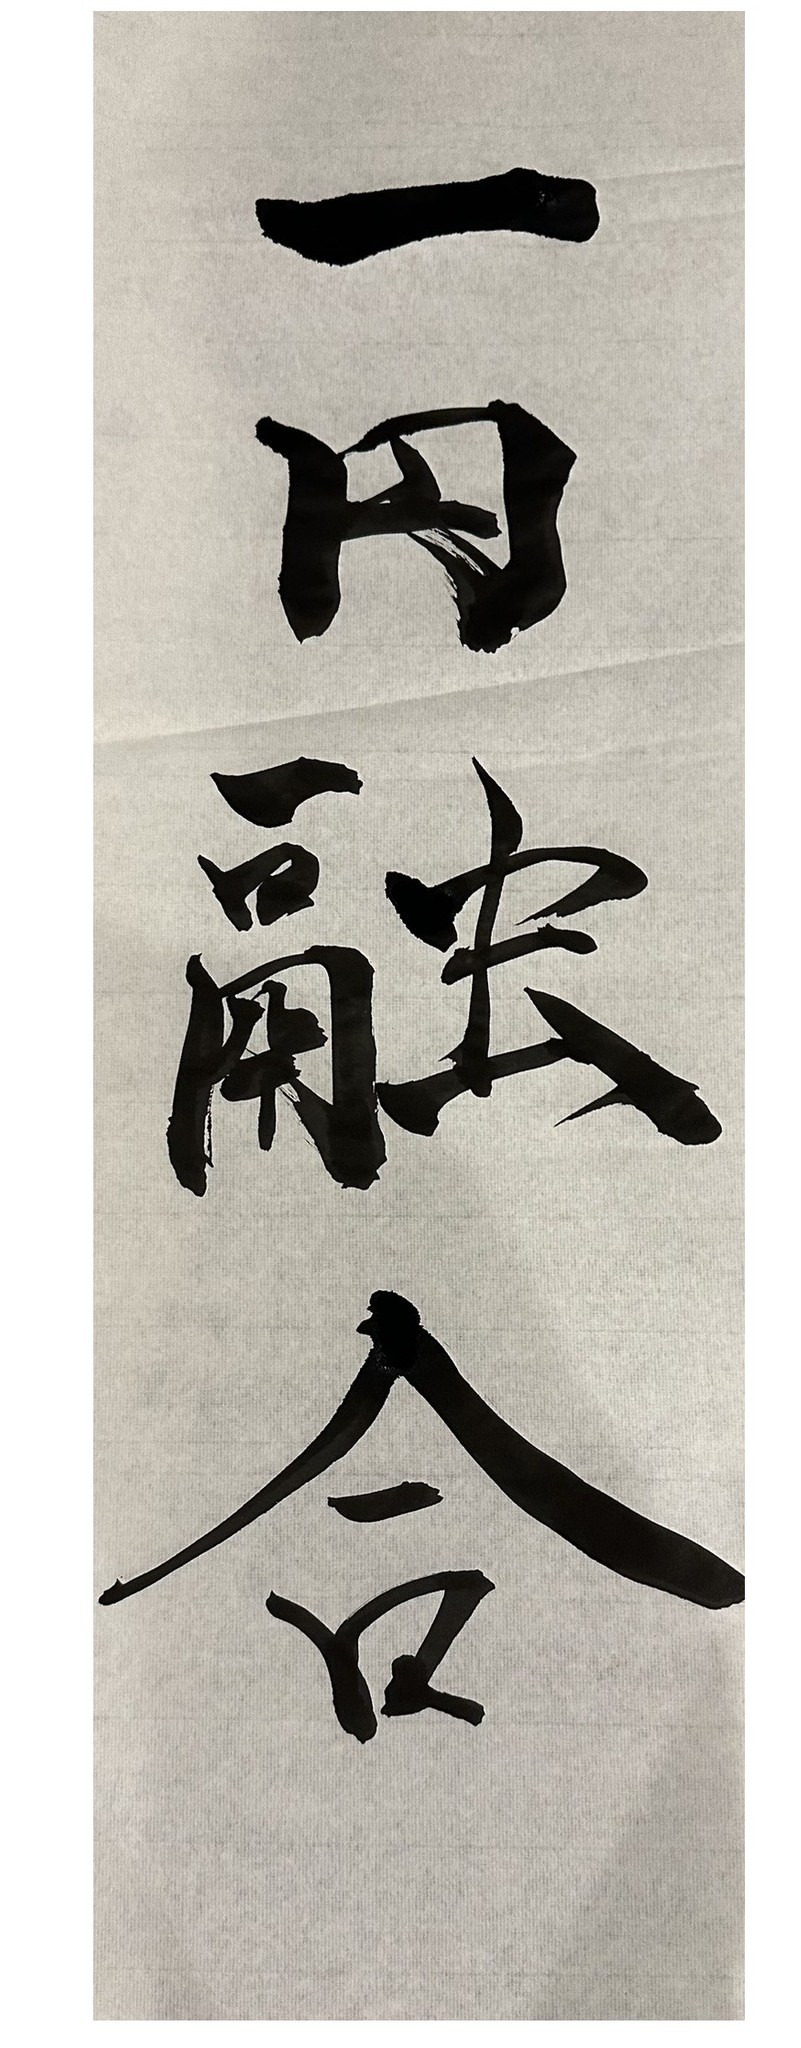 一円融合